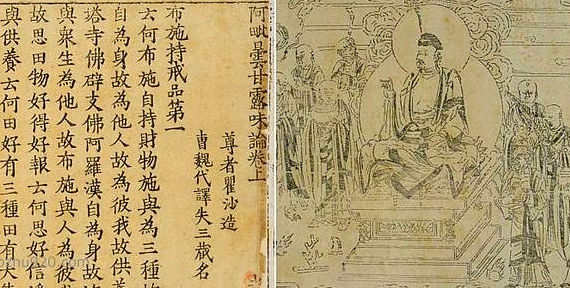 阿毗曇甘露味論卷上
尊者瞿沙造
曹魏代譯失三藏名
布施持戒品第一
云何布施自持財物施與為三種故
自為身故為他人故為彼我故供養
塔寺佛辟支佛阿羅漢自為身故施
與眾生為他人故布施與人為彼我
故思田物好得好報云何思好信淨
與供養云何田好有三種田有大